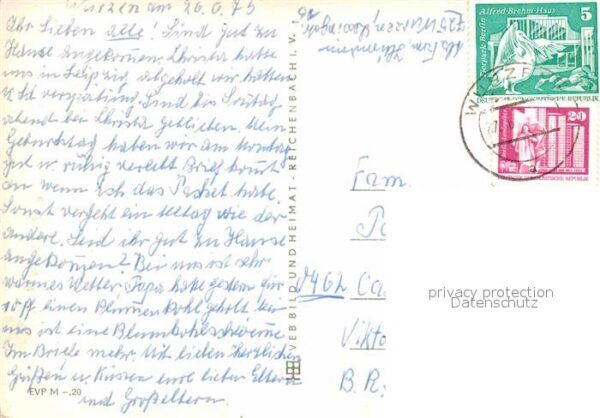 Wurzen am 26.6.75
Ihr Lieben alle! Sind gut zu
Hause angekommen. Christa hatte
uns in Leipzig abgeholt wir hatten
Sind bis Sonntag
abend bei Christa geblieben. Mein
Geburtstag haben wir am Montag
gut u. ruhig verlebt Brief kommt
an wenn ich das Packet habe.
Sonst vergeht ein Alltag wie der
andere. Seid ihr gut zu Hause
angekommen? Bei uns ist sehr
warmes Wetter Papa hat gestern für
einen Blumenkohl geholt bei
uns ist eine Blumenkohlschwemme
Im Briefe mehr. Mit lieben herzlichen
Grüßen u. Küssen eure lieben Eltern
und Großeltern.
EVP M –,20
VEB BILD UND HEIMAT · REICHENBACH I. V.
725 Wurzen
Fam.
Vikto
B.R.
Alfred-Brehm-Haus
Tierpark Berlin
5
20
WURZEN
privacy protection
Datenschutz